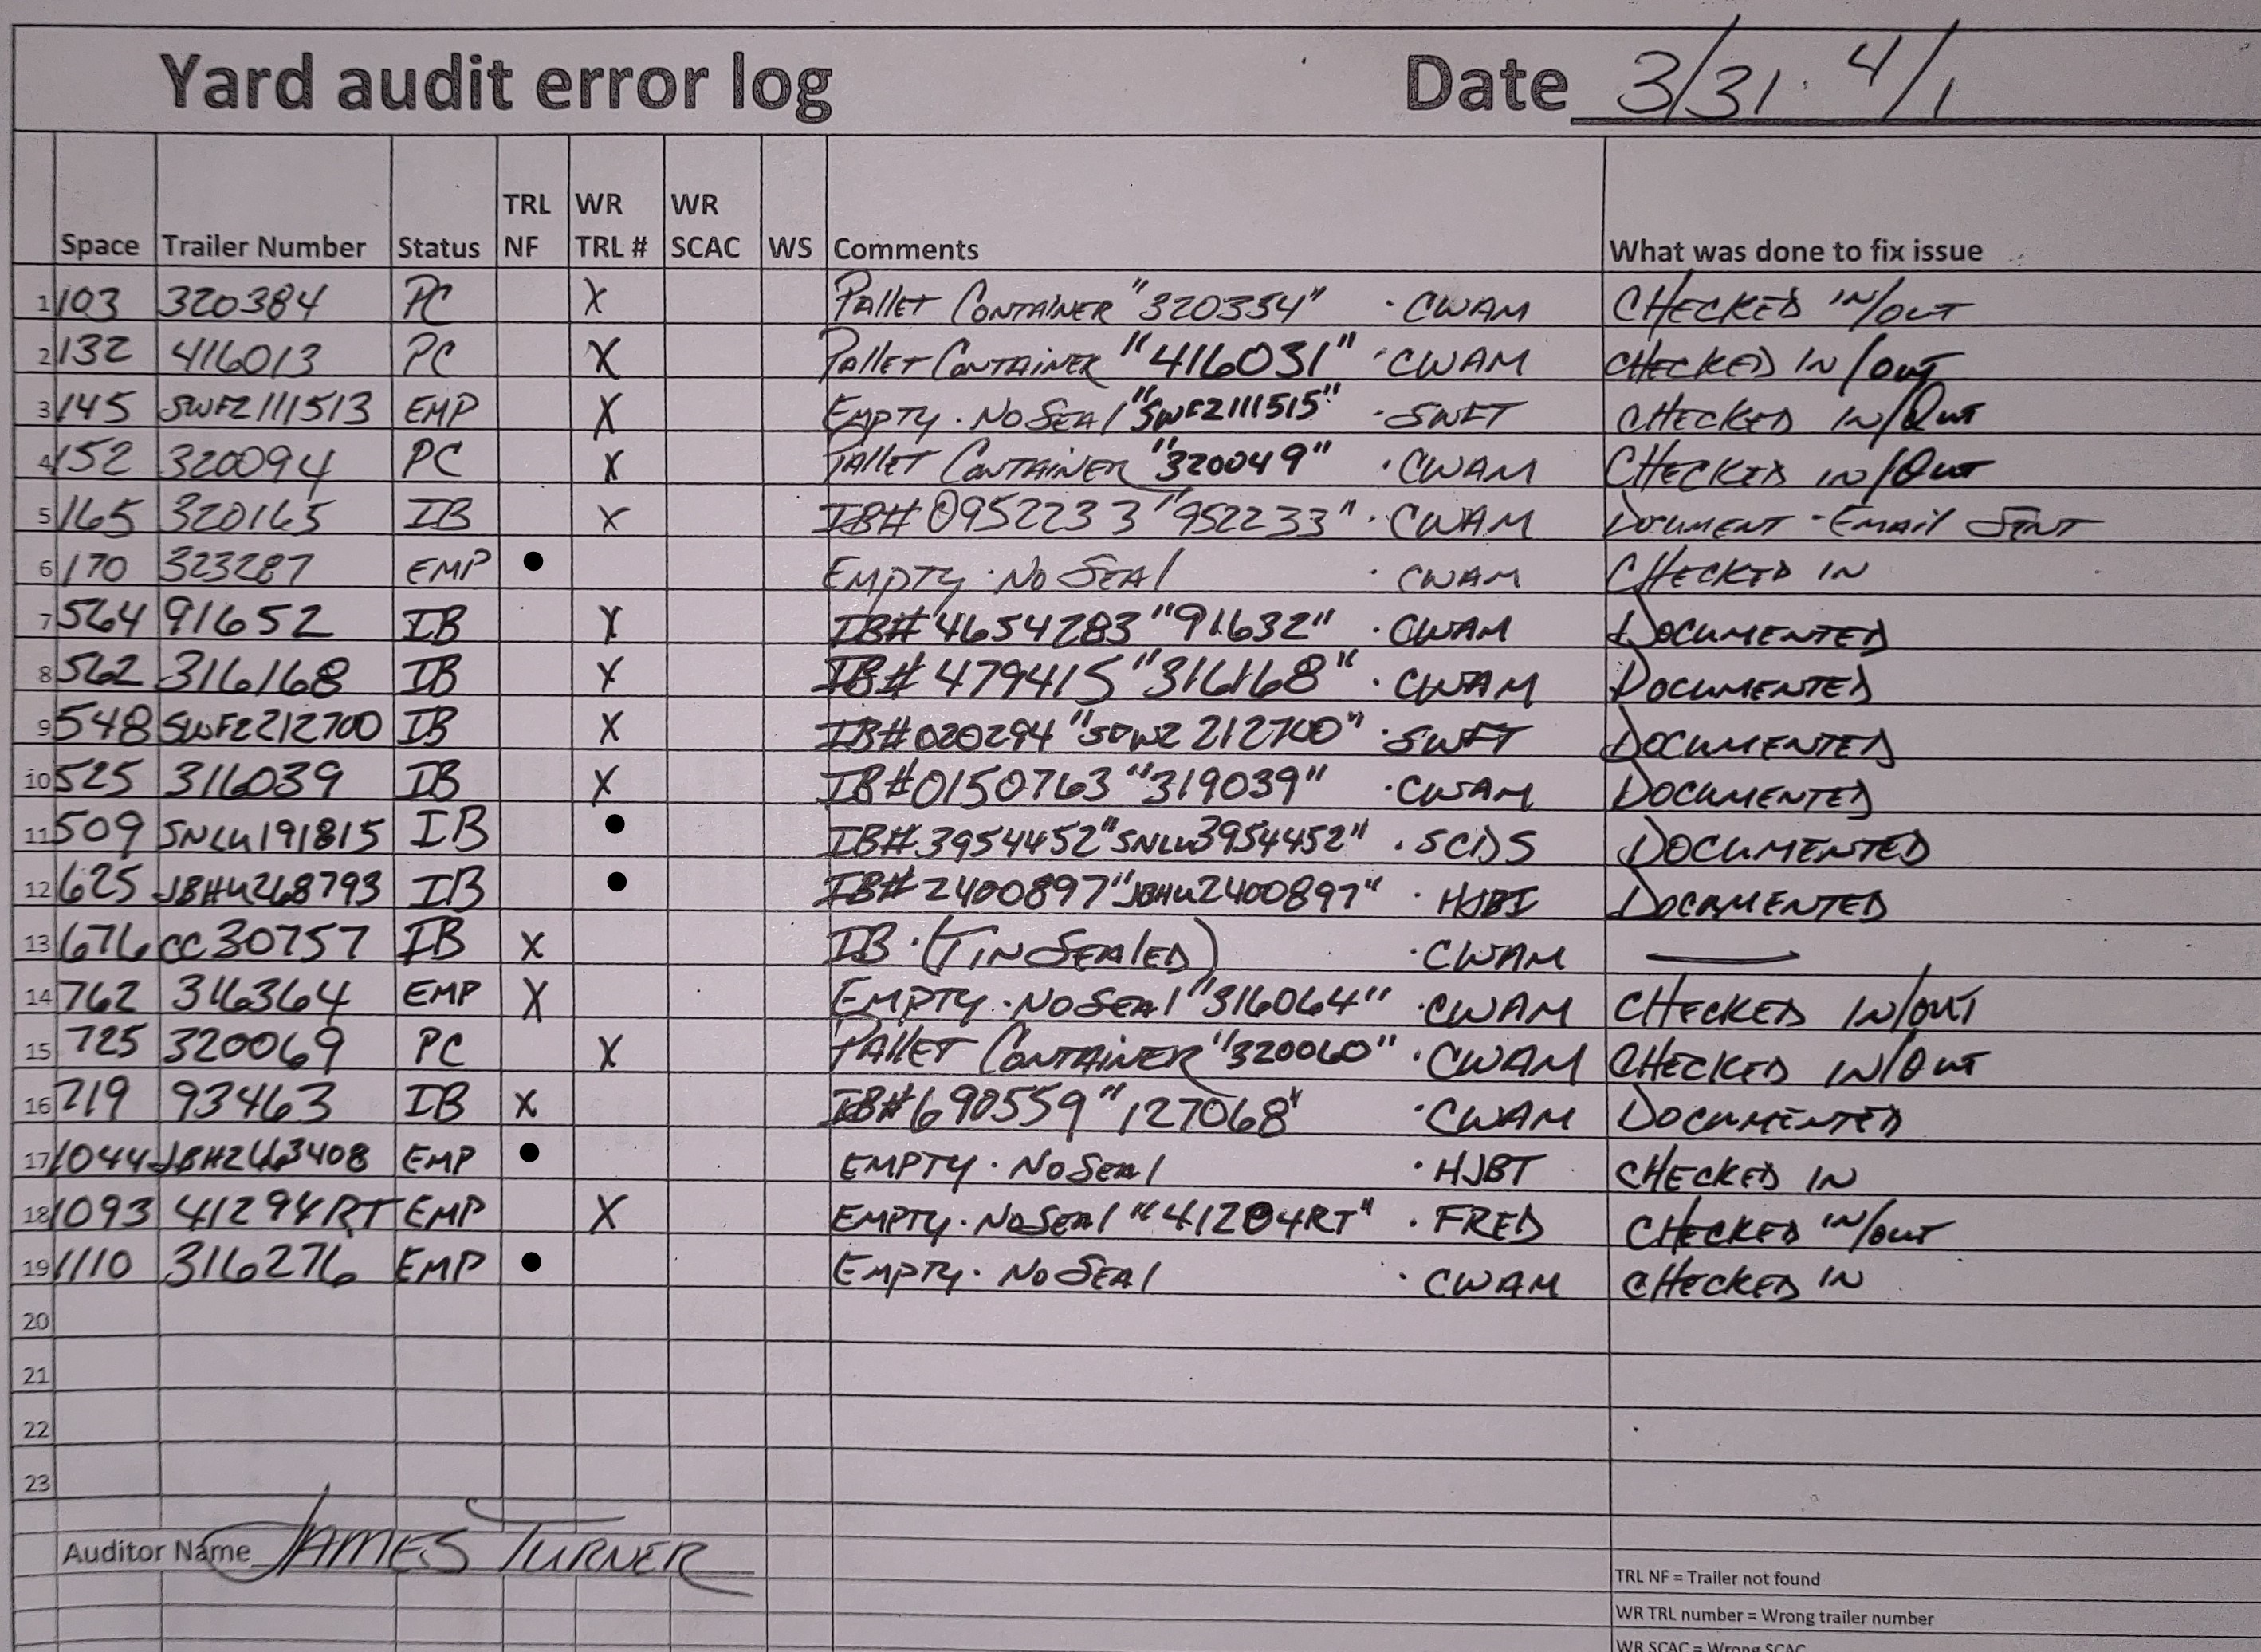 Yard audit error log Date 3/31 · 4/1
Space Trailer Number Status TRL NF WR TRL # WR SCAC WS Comments What was done to fix issue
1 103 320384 PC X PALLET CONTAINER "320354" · CWAM CHECKED IN/OUT
2 132 416013 PC X PALLET CONTAINER "416031" · CWAM CHECKED IN/OUT
3 145 SWFZ111513 EMP X EMPTY · NO SEAL "SWFZ111515" · SWFT CHECKED IN/OUT
4 152 320094 PC X PALLET CONTAINER "320049" · CWAM CHECKED IN/OUT
5 165 320165 IB X IB# 0952233 "952233" · CWAM DOCUMENT · EMAIL SENT
6 170 323287 EMP ● EMPTY · NO SEAL · CWAM CHECKED IN
7 564 91652 IB X IB# 4654283 "91632" · CWAM DOCUMENTED
8 562 316168 IB X IB# 479415 "316168" · CWAM DOCUMENTED
9 548 SWFZ212700 IB X IB# 020294 212700" · SWFT DOCUMENTED
10 525 316039 IB X IB# 0150763 "319039" · CWAM DOCUMENTED
11 509 SNLU191815 IB ● IB# 3954452 "SNLU3954452" · SCDS DOCUMENTED
12 625 JBHU268793 IB ● IB# 2400897 "JBHU2400897" · HJBI DOCUMENTED
13 676 CC30757 IB X IB · (TIN SEALED) · CWAM —
14 762 316364 EMP X EMPTY · NO SEAL "316064" · CWAM CHECKED IN/OUT
15 725 320069 PC X PALLET CONTAINER "320060" · CWAM CHECKED IN/OUT
16 719 93463 IB X IB# 690559 "127068" · CWAM DOCUMENTED
17 1044 JBHZ463408 EMP ● EMPTY · NO SEAL · HJBT CHECKED IN
18 1093 41294RT EMP X EMPTY · NO SEAL "41204RT" · FRED CHECKED IN/OUT
19 1110 316276 EMP ● EMPTY · NO SEAL · CWAM CHECKED IN
20
21
22
23
Auditor Name JAMES TURNER
TRL NF = Trailer not found
WR TRL number = Wrong trailer number
WR SCAC = Wrong SCAC